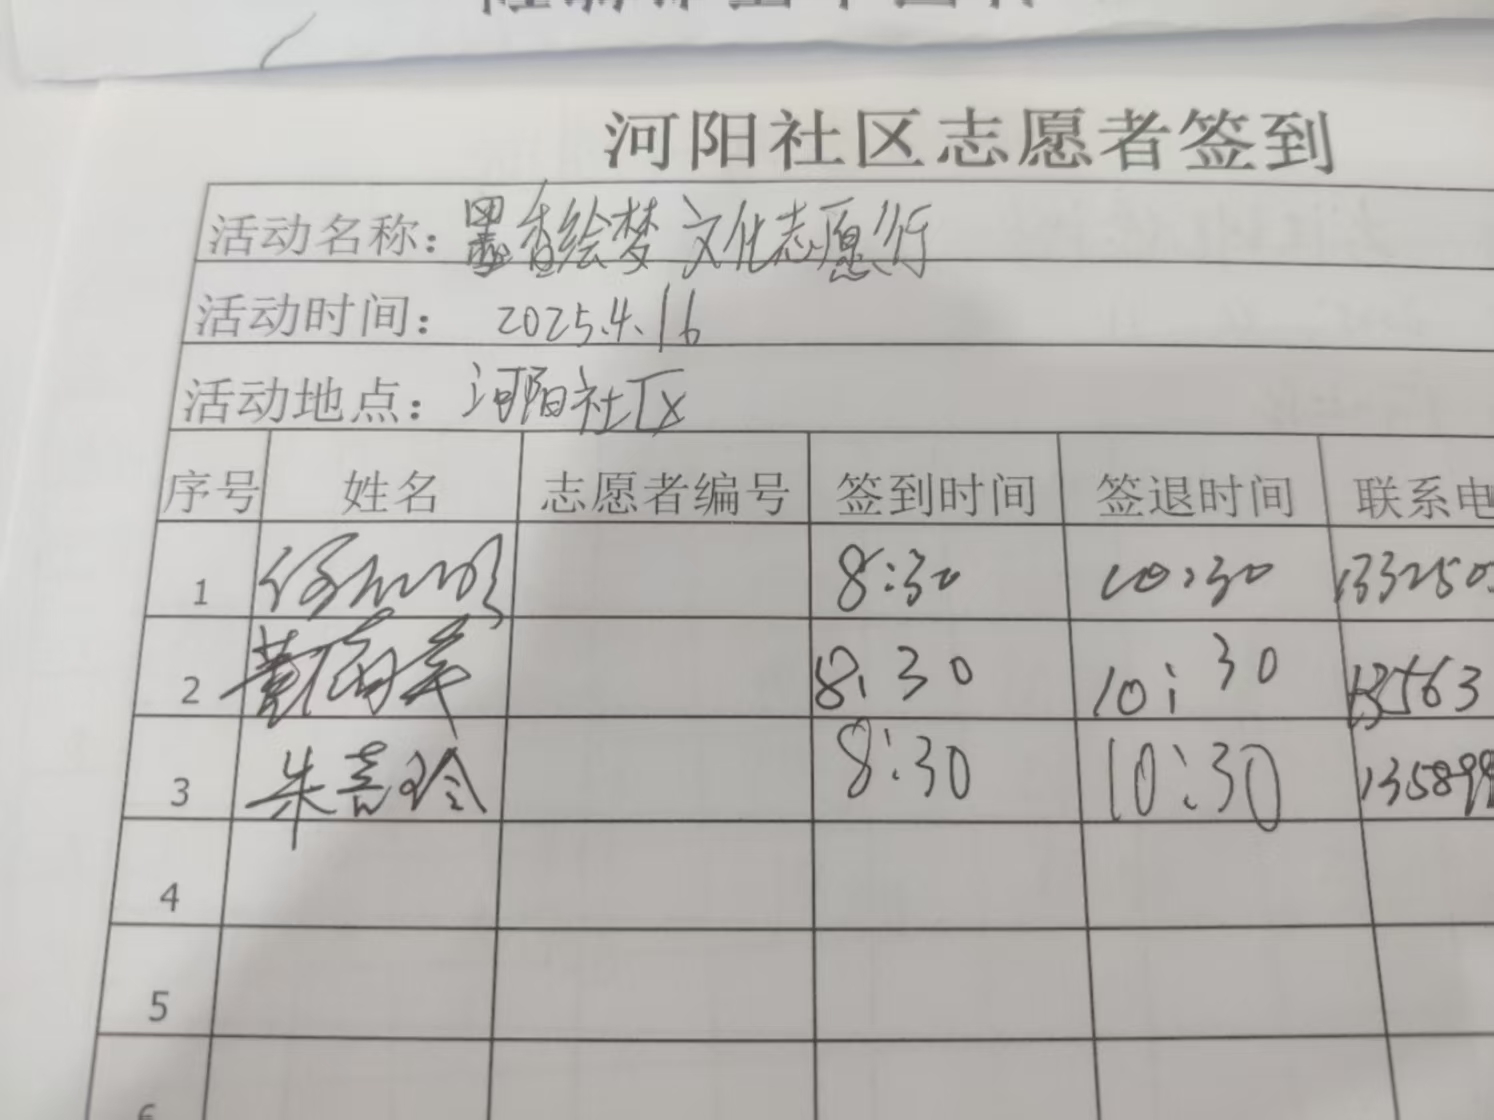 河阳社区志愿者签到
活动名称：墨香绘梦 文化志愿行
活动时间： 2025.4.16
活动地点：河阳社区
序号 姓名 志愿者编号 签到时间 签退时间 联系电
1 8:30 10:30 133250
2 黄 8:30 10:30 13563
3 朱喜玲 8:30 10:30 135899
4
5
6